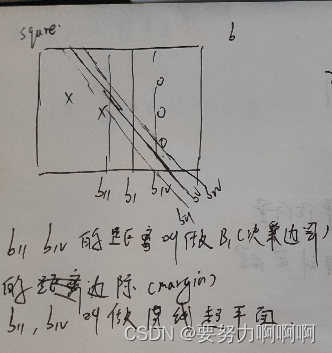 squre.
b
x
x
o
o
o
b11 b1 b1v
b11 b1v 的距离叫做 B1(决策边界)
的边际(margin)
b11, b1v 叫做
平面
CSDN @要努力啊啊啊